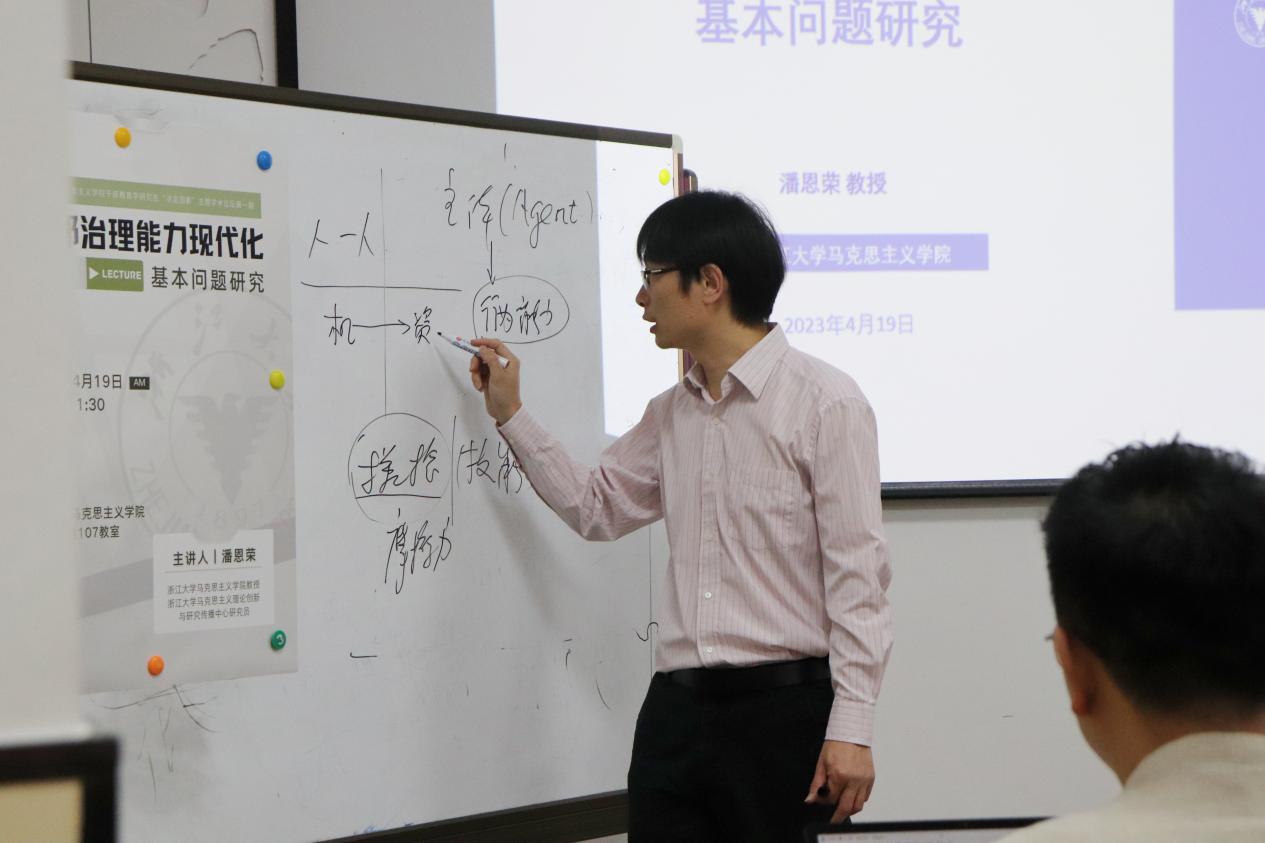 治理能力现代化
LECTURE
基本问题研究
4月19日 AM
1:30
克思主义学院
107教室
主讲人｜潘恩荣
浙江大学马克思主义学院教授
浙江大学马克思主义理论创新
与研究传播中心研究员
人一人
主体(Agent)
机→资
行为能力
摩擦力
基本问题研究
潘恩荣 教授
江大学马克思主义学院
2023年4月19日